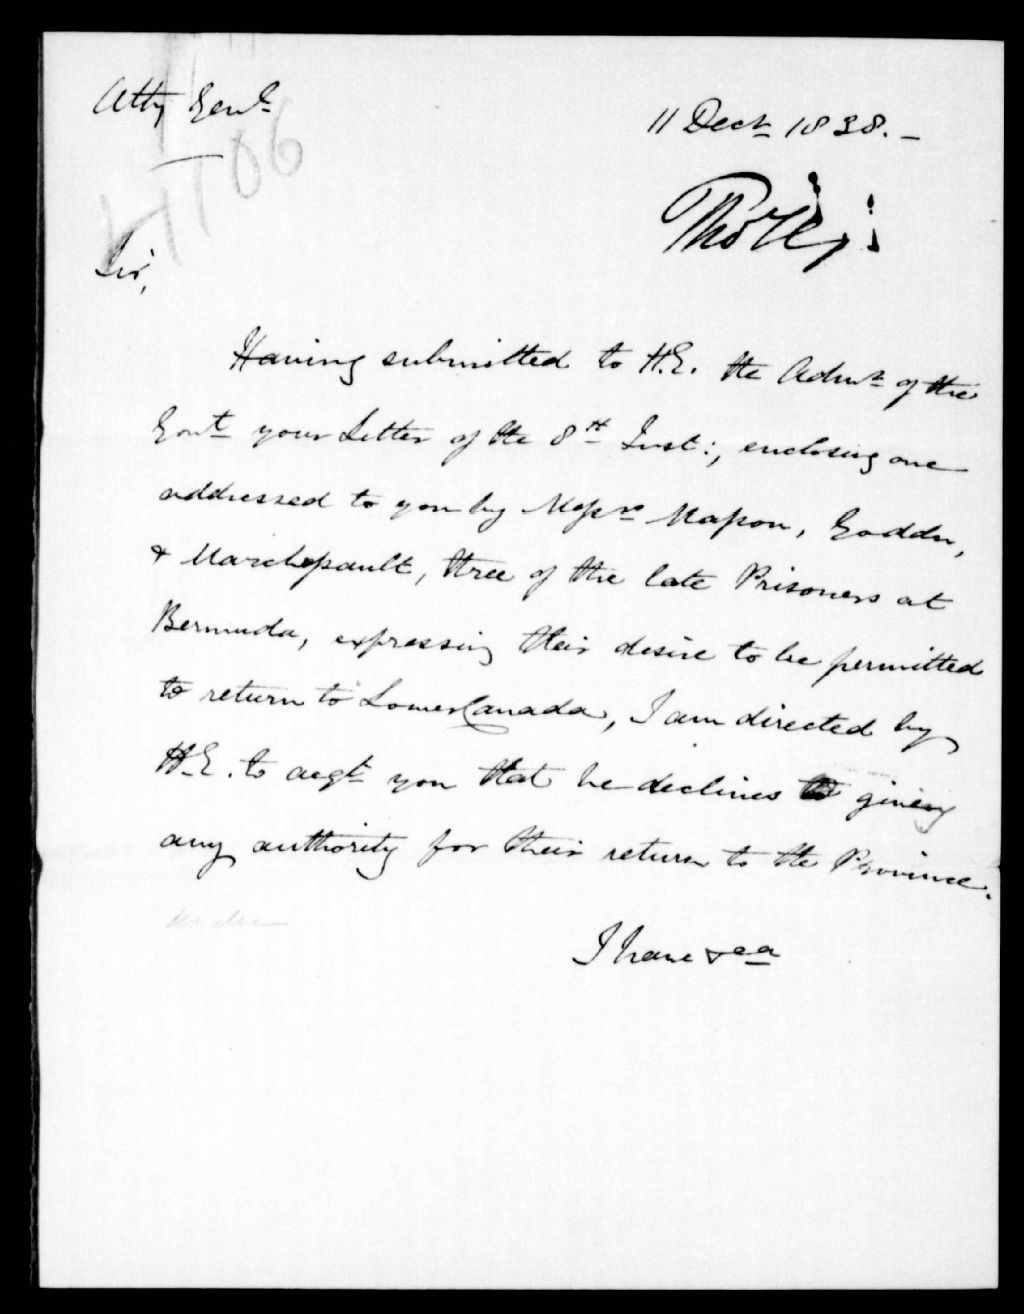 Atty Genl
11 Decr 1838.-
Sir,
Having submitted to H.E. the Admr of the
Govt your Letter of the 8th Inst:, enclosing one
addressed to you by Messrs Masson, Goddu,
& Marchessault, three of the late Prisoners at
Bermuda, expressing their desire to be permitted
to return to Lower Canada, I am directed by
H.E. to acqt you that he declines giving
any authority for their return to the Province.
I have &ca